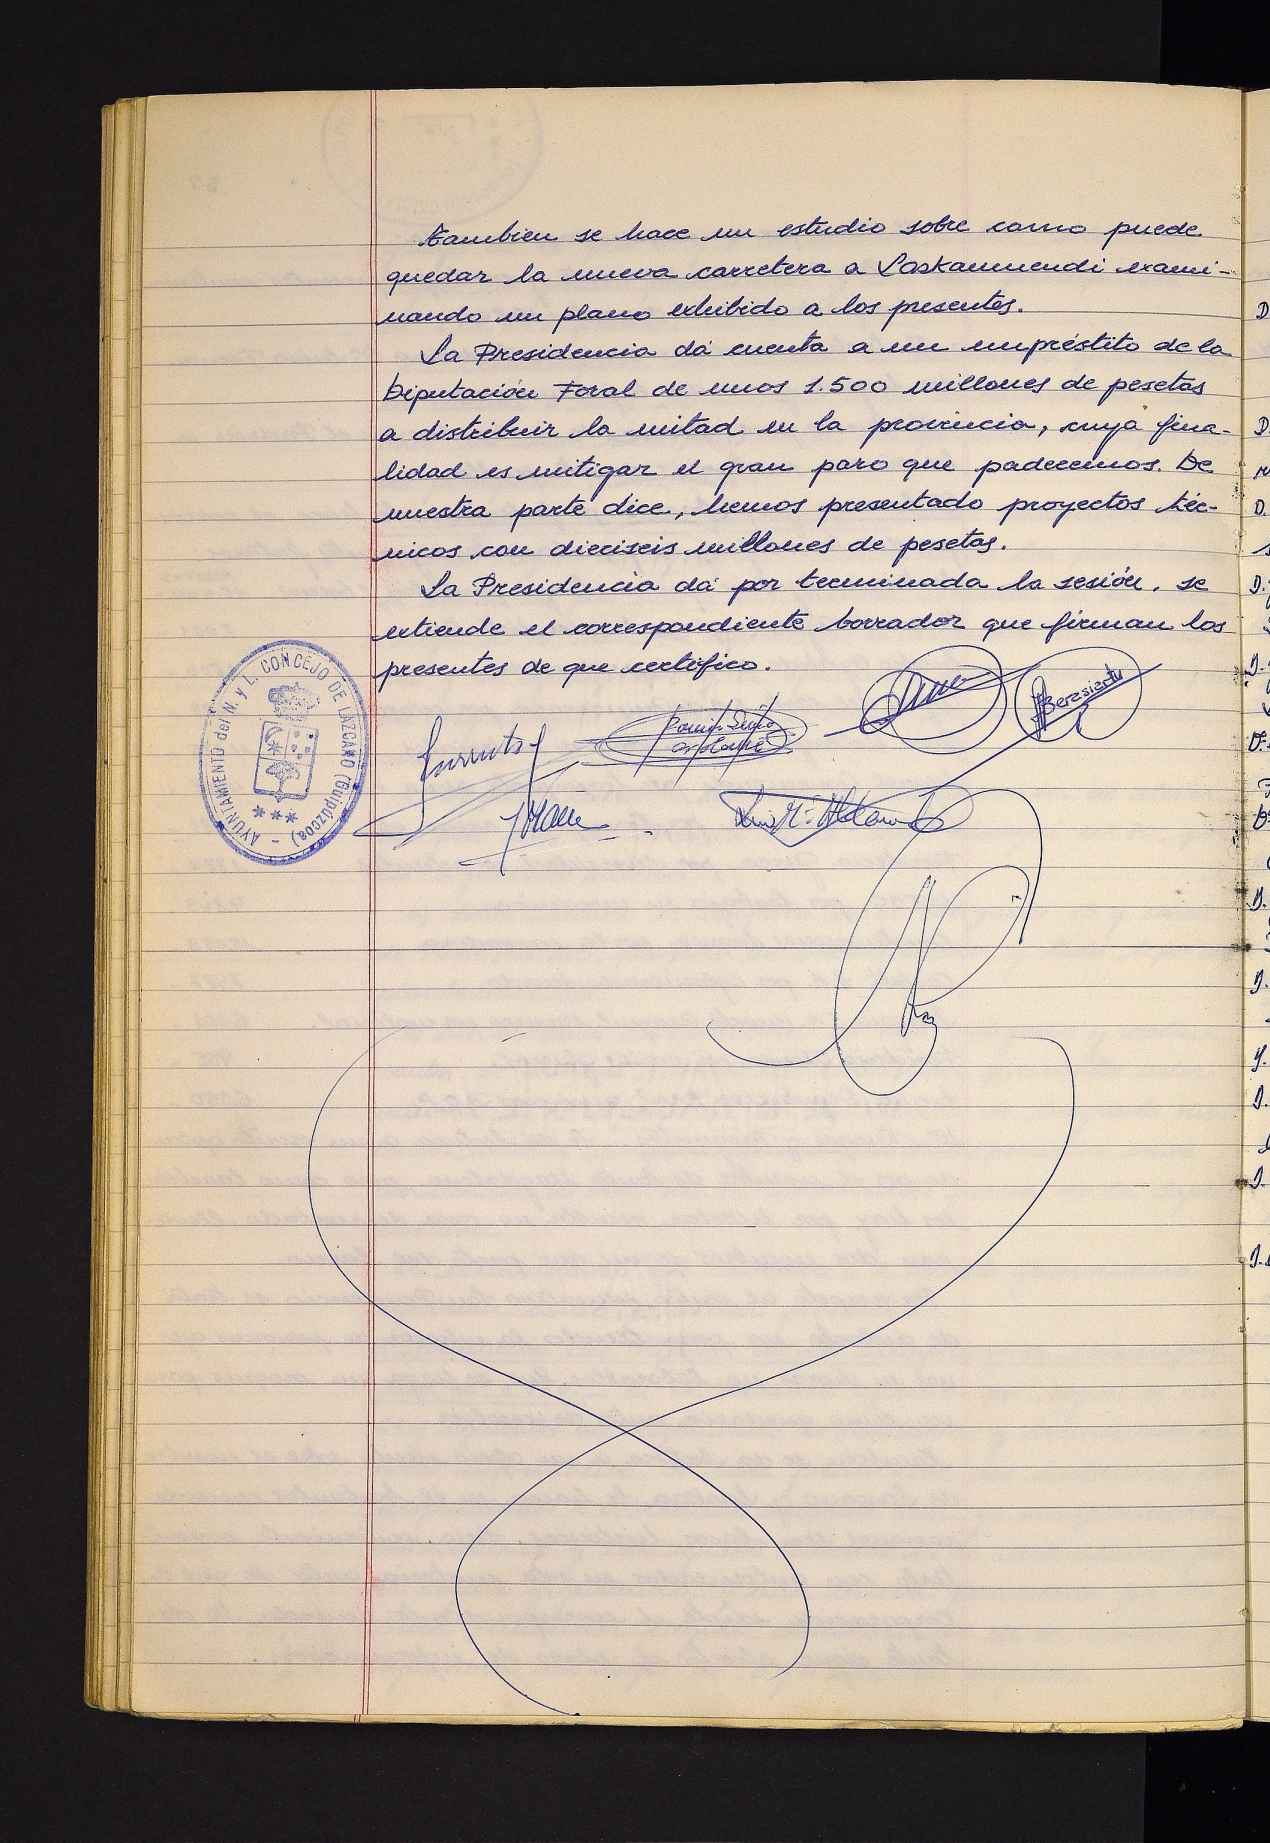 tambien se hace un estudio sobre como puede
quedar la nueva carretera a Laskanmendi exami-
nando un plano exhibido a los presentes.
La Presidencia dá cuenta a un empréstito de la
Diputación Foral de unos 1.500 millones de pesetas
a distribuir la mitad en la provincia, cuya fina-
lidad es mitigar el gran paro que padecemos. De
nuestra parte dice, hemos presentado proyectos téc-
nicos con dieciseis millones de pesetas.
La Presidencia dá por terminada la sesión, se
extiende el correspondiente borrador que firman los
presentes de que certifico.
AYUNTAMIENTO del N. y L. CONCEJO DE LAZCANO (Guipúzcoa)
Beresiartu